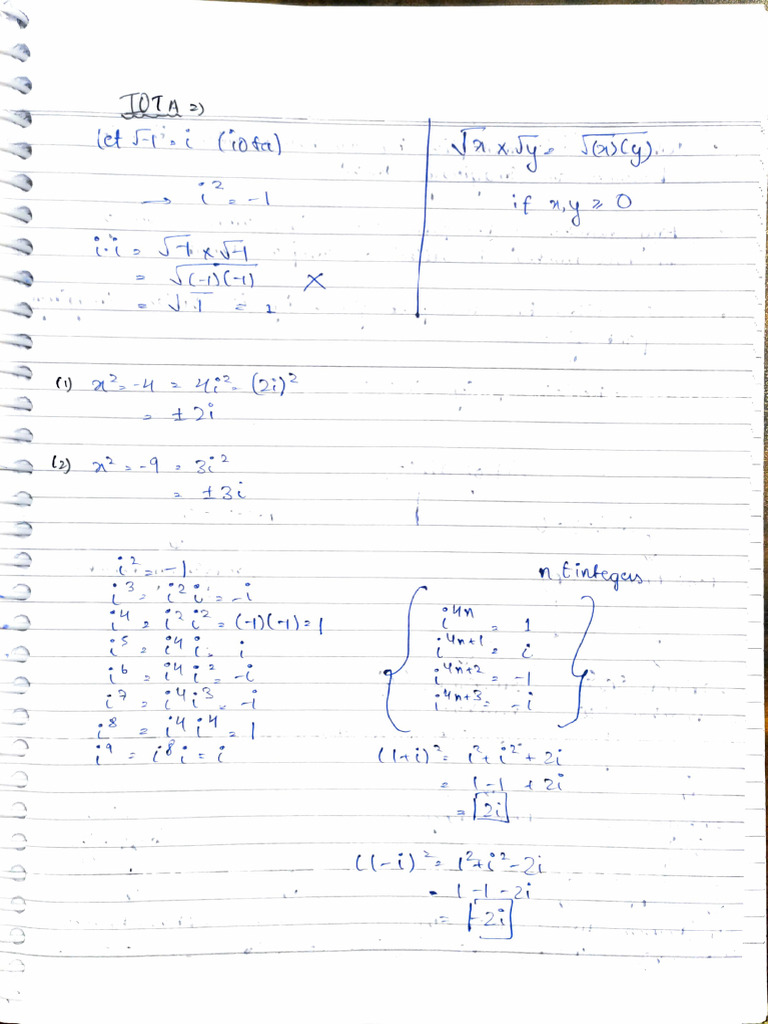 IOTA ⇒
let √-1 = i (iota)
→ i² = -1
i·i = √-1 × √-1
= √(-1)(-1) ×
= √1 = 1
√x × √y = √(x)(y)
if x, y ≥ 0
(1) x² = -4 = 4i² = (2i)²
= ±2i
(2) x² = -9 = 3i²
= ±3i
i² = -1
i³ = i² i = -i
i⁴ = i² i² = (-1)(-1) = 1
i⁵ = i⁴ i = i
i⁶ = i⁴ i² = -i
i⁷ = i⁴ i³ = -i
i⁸ = i⁴ i⁴ = 1
i⁹ = i⁸ i = i
n, ∈ integers
i⁴ⁿ = 1
i⁴ⁿ⁺¹ = i
i⁴ⁿ⁺² = -1
i⁴ⁿ⁺³ = -i
(1+i)² = i² + i² + 2i
= 1 - 1 + 2i
= 2i
(1-i)² = 1² + i² - 2i
= 1 - 1 - 2i
= -2i